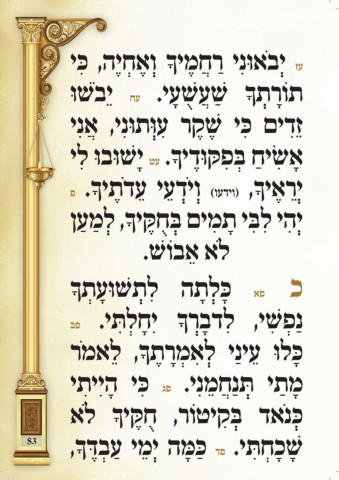 עז יְבֹאוּנִי רַחֲמֶיךָ וְאֶחְיֶה, כִּי
תוֹרָתְךָ שַׁעֲשֻׁעָי. עח יֵבֹשׁוּ
זֵדִים כִּי שֶׁקֶר עִוְּתוּנִי, אֲנִי
אָשִׂיחַ בְּפִקּוּדֶיךָ. עט יָשׁוּבוּ לִי
יְרֵאֶיךָ, (וידעו) וְיֹדְעֵי עֵדֹתֶיךָ. פ
יְהִי לִבִּי תָמִים בְּחֻקֶּיךָ, לְמַעַן
לֹא אֵבוֹשׁ.
כ פא כָּלְתָה לִתְשׁוּעָתְךָ
נַפְשִׁי, לִדְבָרְךָ יִחָלְתִּי. פב
כָּלוּ עֵינַי לְאִמְרָתֶךָ, לֵאמֹר
מָתַי תְּנַחֲמֵנִי. פג כִּי הָיִיתִי
כְּנֹאד בְּקִיטוֹר, חֻקֶּיךָ לֹא
שָׁכָחְתִּי. פד כַּמָּה יְמֵי עַבְדֶּךָ,
83